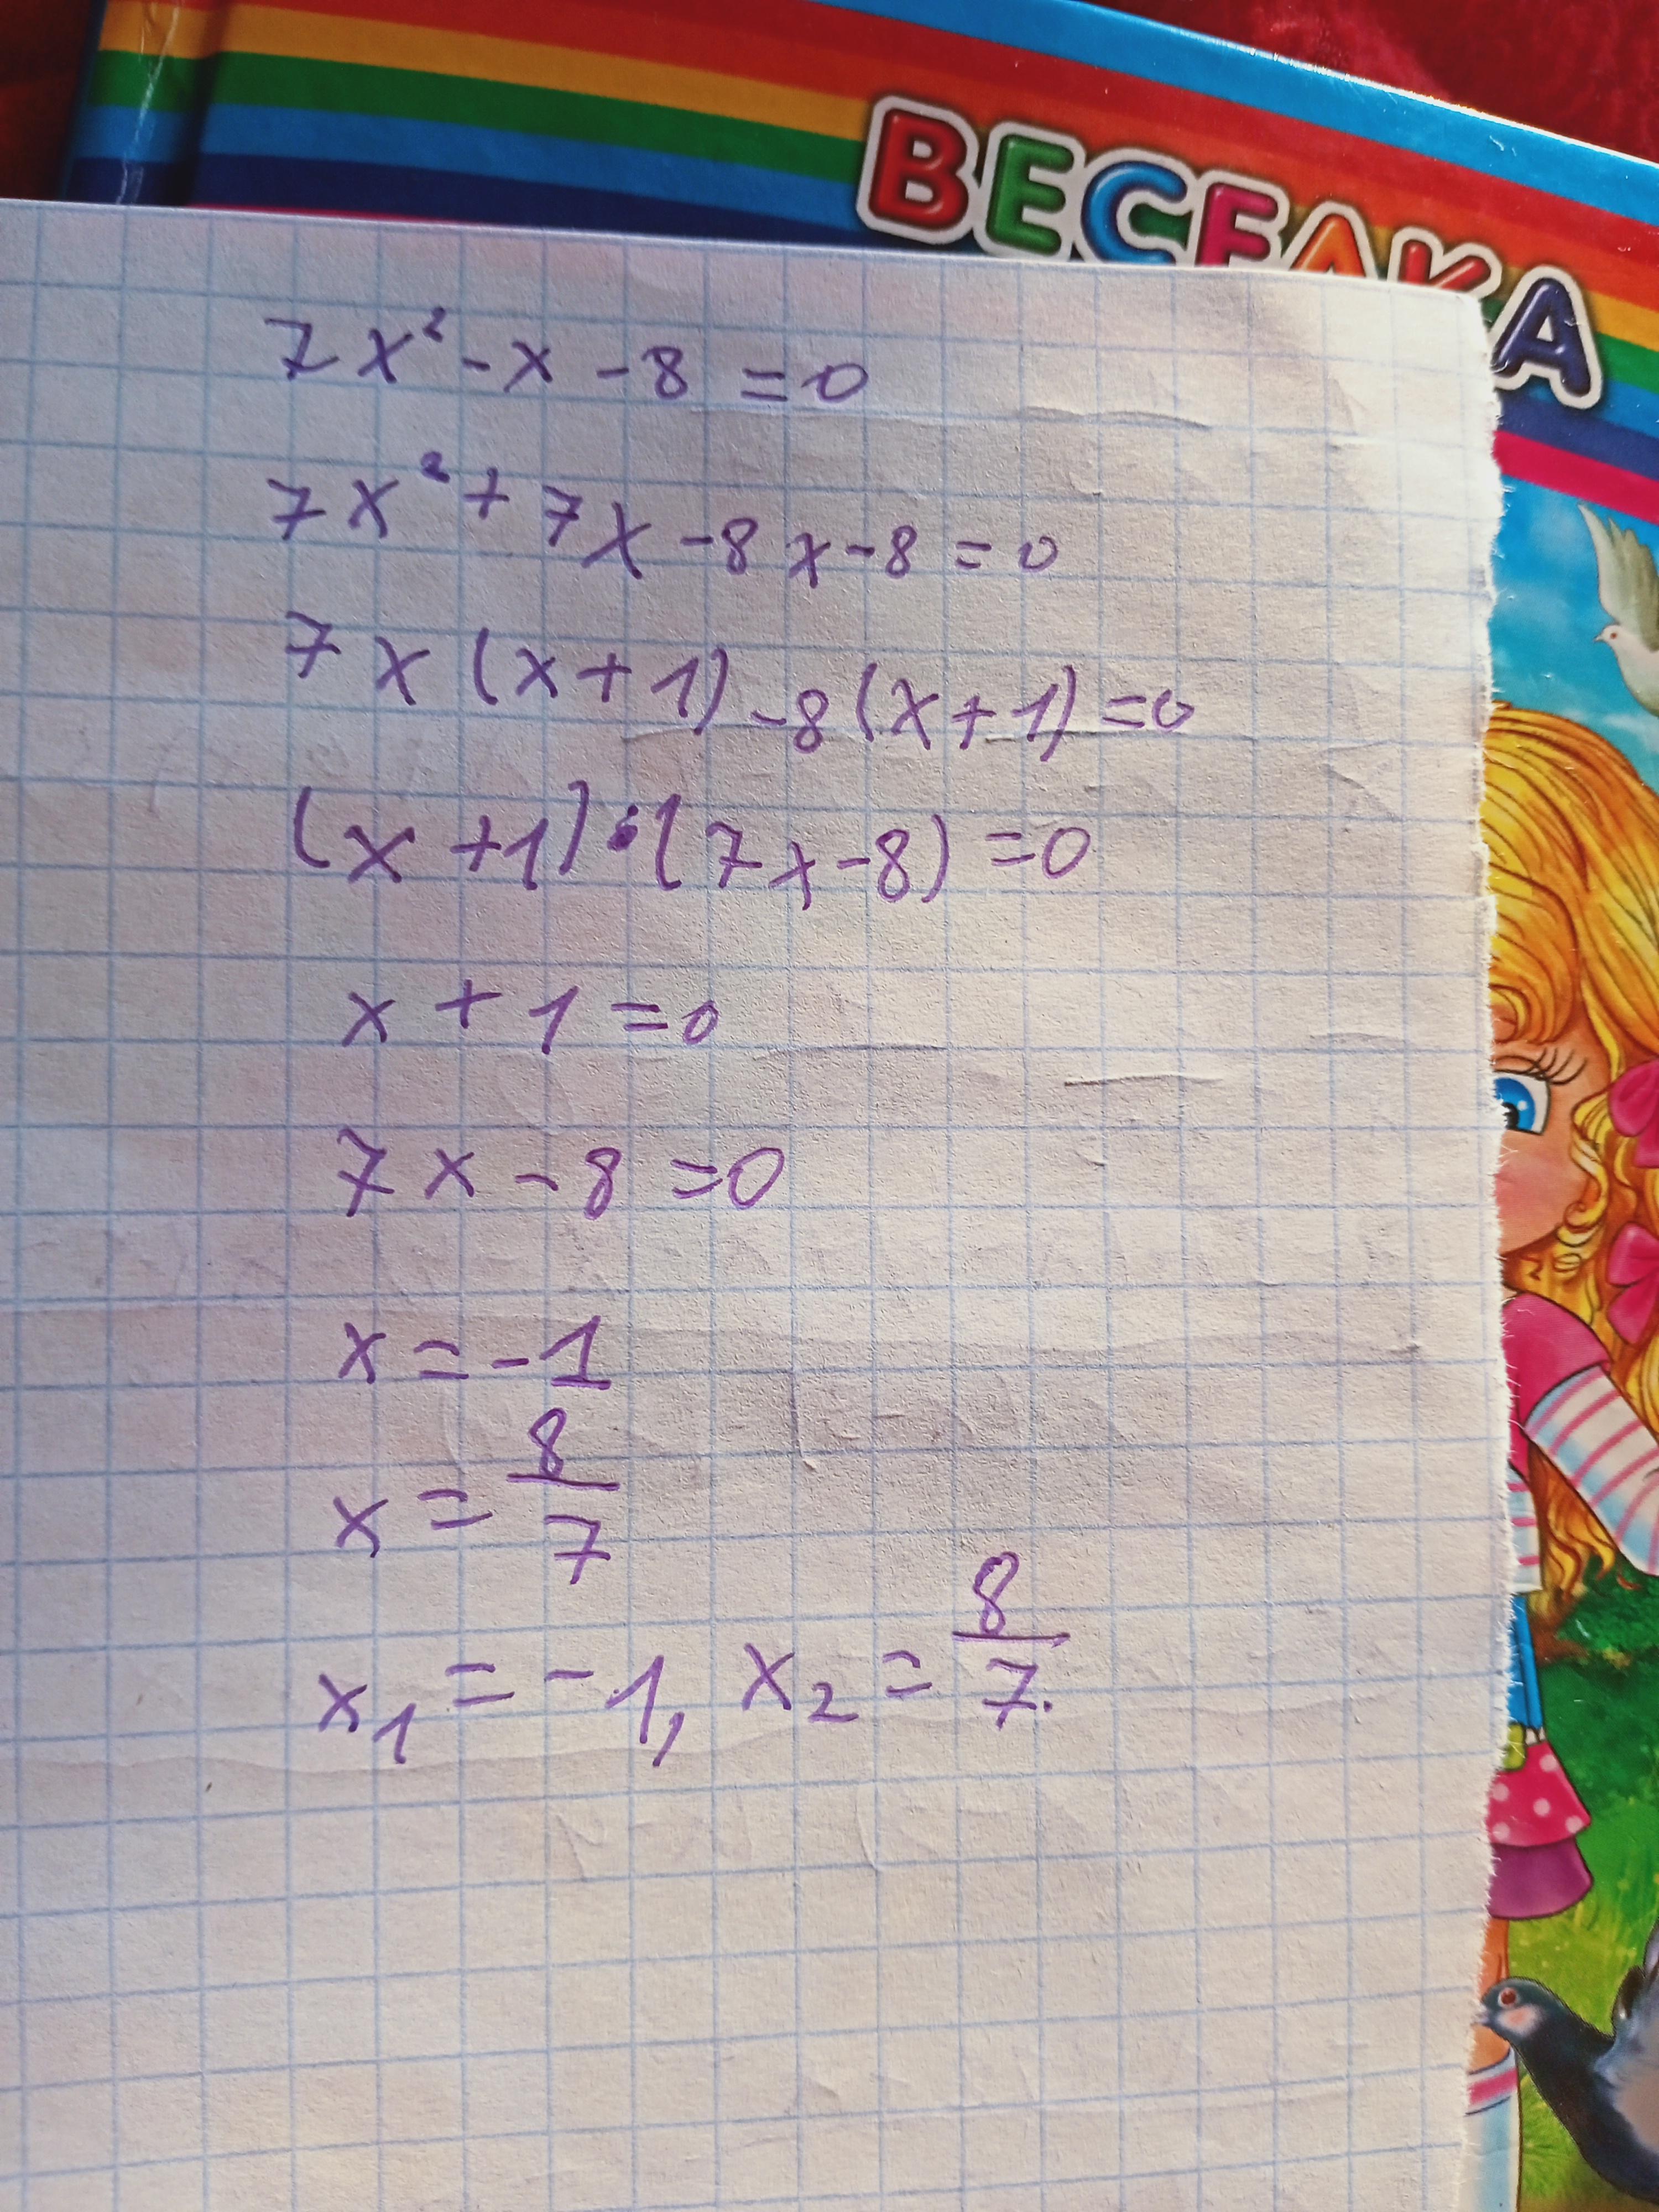 ВЕСЕЛКА
7x² - x - 8 = 0
7x² + 7x - 8x - 8 = 0
7x (x + 1) - 8 (x + 1) = 0
(x + 1) · (7x - 8) = 0
x + 1 = 0
7x - 8 = 0
x = -1
x = 8/7
x₁ = -1, x₂ = 8/7.